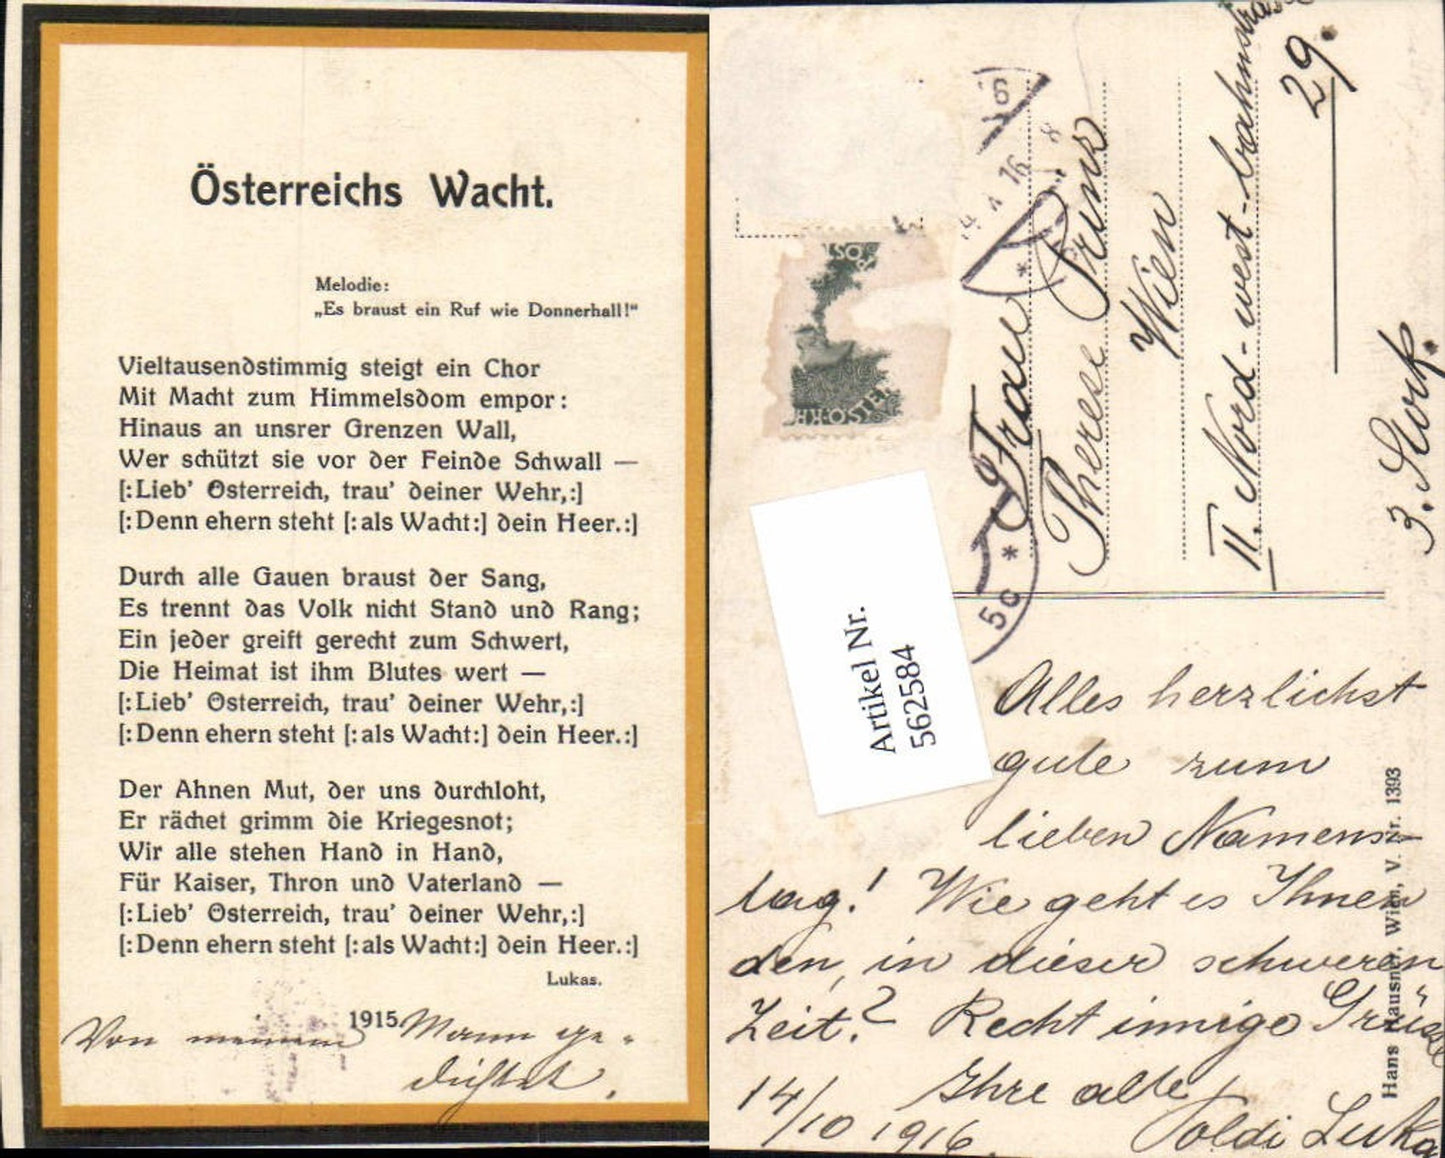 Österreichs Wacht.
Melodie:
„Es braust ein Ruf wie Donnerhall!“
Vieltausendstimmig steigt ein Chor
Mit Macht zum Himmelsdom empor:
Hinaus an unsrer Grenzen Wall,
Wer schützt sie vor der Feinde Schwall —
[:Lieb’ Österreich, trau’ deiner Wehr,:]
[:Denn ehern steht [:als Wacht:] dein Heer.:]
Durch alle Gauen braust der Sang,
Es trennt das Volk nicht Stand und Rang;
Ein jeder greift gerecht zum Schwert,
Die Heimat ist ihm Blutes wert —
[:Lieb’ Österreich, trau’ deiner Wehr,:]
[:Denn ehern steht [:als Wacht:] dein Heer.:]
Der Ahnen Mut, der uns durchloht,
Er rächet grimm die Kriegesnot;
Wir alle stehen Hand in Hand,
Für Kaiser, Thron und Vaterland —
[:Lieb’ Österreich, trau’ deiner Wehr,:]
[:Denn ehern steht [:als Wacht:] dein Heer.:]
Lukas.
1915
Von meinem Mann ge-
dichtet.
Frau
Therese
Wien
II. Nord-west-bahnstrasse
29.
3. Stock.
5c
Artikel Nr.
562584
Alles herzlichst
gute zum
lieben Namens-
tag! Wie geht es Ihnen
den, in dieser schweren
Zeit? Recht innige Grüsse
Ihre alte
14/10 1916. Poldi Lukas
Hans Hausner, Wien, V. Nr. 1393